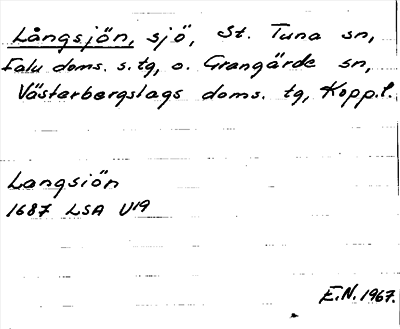 Långsjön, sjö, St. Tuna sn,
Falu doms. s.tg, o. Grangärde sn,
Västerbergslags doms. tg, Kopp.l.
Langsiön
1687 LSA U19
E.N. 1967.